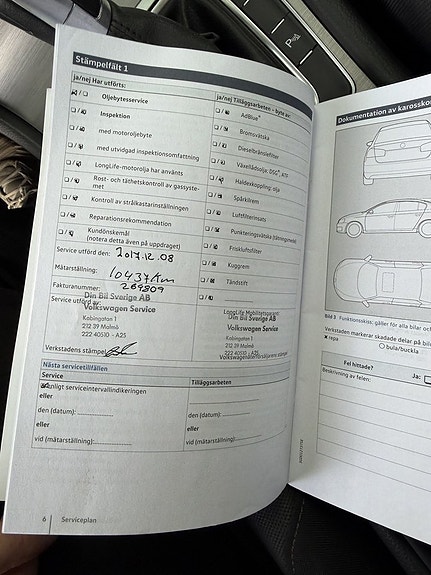 Stämpelfält 1
ja/nej Har utförts:
Oljebytesservice
Inspektion
med motoroljebyte
med utvidgad inspektionsomfattning
LongLife-motorolja har använts
Rost- och täthetskontroll av gassyste-
met
Kontroll av strålkastarinställningen
Reparationsrekommendation
Kundönskemål
(notera detta även på uppdraget)
Service utförd den: 2017.12.08
Mätarställning: 10437km
Fakturanummer: 269809
Service utförd av:
Din Bil Sverige AB
Volkswagen Service
Kabingatan 1
212 39 Malmö
222 40510 - A25
Verkstadens stämpel
ja/nej Tilläggsarbeten – byte av:
AdBlue®
Bromsvätska
Dieselbränslefilter
Växellådsolja: DSG®, ATF
Haldexkoppling: olja
Spårkilrem
Luftfilterinsats
Punkteringsvätska (tätningsmedel)
Friskluftsfilter
Kuggrem
Tändstift
LongLife Mobilitetsgaranti:
Din Bil Sverige AB
Volkswagen Service
Kabingatan 1
212 39 Malmö
222 40510 - A25
Volkswagenåterförsäljarens stämpel
Nästa servicetillfällen
Service
Enligt serviceintervallindikeringen
eller
den (datum):
eller
vid (mätarställning):
Tilläggsarbeten
den (datum):
eller
vid (mätarställning):
6 Serviceplan
Dokumentation av karosskon
Bild 3 Funktionsskiss: gäller för alla bilar och
Verkstaden markerar skadade delar på bilde
× repa
O bula/buckla
Fel hittade?
Ja:
Beskrivning av felen: